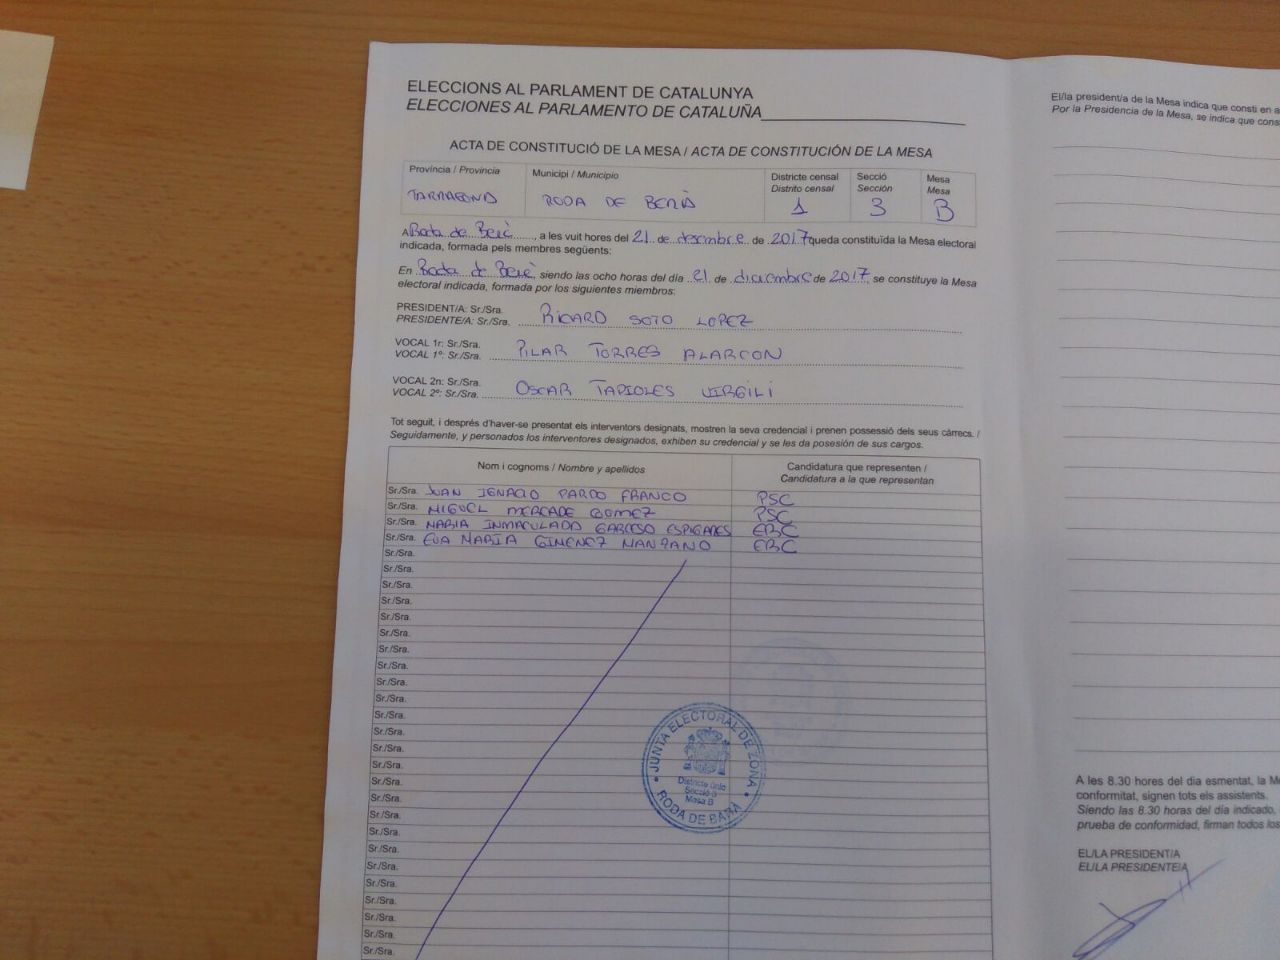 ELECCIONS AL PARLAMENT DE CATALUNYA
ELECCIONES AL PARLAMENTO DE CATALUÑA
ACTA DE CONSTITUCIÓ DE LA MESA / ACTA DE CONSTITUCIÓN DE LA MESA
Província / Provincia Municipi / Municipio Districte censal Secció Mesa
Distrito censal Sección Mesa
TARRAGONA RODA DE BERÀ 1 3 B
A Roda de Berà, a les vuit hores del 21 de desembre de 2017 queda constituïda la Mesa electoral
indicada, formada pels membres següents:
En Roda de Berà, siendo las ocho horas del día 21 de diciembre de 2017, se constituye la Mesa
electoral indicada, formada por los siguientes miembros:
PRESIDENT/A: Sr./Sra.
PRESIDENTE/A: Sr./Sra. RICARD SOTO LOPEZ
VOCAL 1r: Sr./Sra.
VOCAL 1º: Sr./Sra. PILAR TORRES ALARCON
VOCAL 2n: Sr./Sra.
VOCAL 2º: Sr./Sra. OSCAR TAPIOLES VIRGILI
Tot seguit, i després d'haver-se presentat els interventors designats, mostren la seva credencial i prenen possessió dels seus càrrecs. /
Seguidamente, y personados los interventores designados, exhiben su credencial y se les da posesión de sus cargos.
Nom i cognoms / Nombre y apellidos Candidatura que representen /
Candidatura a la que representan
Sr./Sra. JUAN IGNACIO PARDO FRANCO PSC
Sr./Sra. MIGUEL MERCADE GOMEZ PSC
Sr./Sra. MARIA INMACULADA ESPIGARES ERC
Sr./Sra. EVA MARIA GIMENEZ MANZANO ERC
Sr./Sra.
Sr./Sra.
Sr./Sra.
Sr./Sra.
Sr./Sra.
Sr./Sra.
Sr./Sra.
Sr./Sra.
Sr./Sra.
Sr./Sra.
Sr./Sra.
Sr./Sra.
Sr./Sra.
Sr./Sra.
Sr./Sra.
Sr./Sra.
Sr./Sra.
Sr./Sra.
Sr./Sra.
Sr./Sra.
Sr./Sra.
Sr./Sra.
Sr./Sra.
Sr./Sra.
Sr./Sra.
JUNTA ELECTORAL DE ZONA
Districte únic
Secció
Mesa B
RODA DE BARÀ
El/la president/a de la Mesa indica que consti en a
Por la Presidencia de la Mesa, se indica que cons
A les 8.30 hores del dia esmentat, la M
conformitat, signen tots els assistents.
Siendo las 8.30 horas del día indicado,
prueba de conformidad, firman todos los
EL/LA PRESIDENT/A
EL/LA PRESIDENTE/A